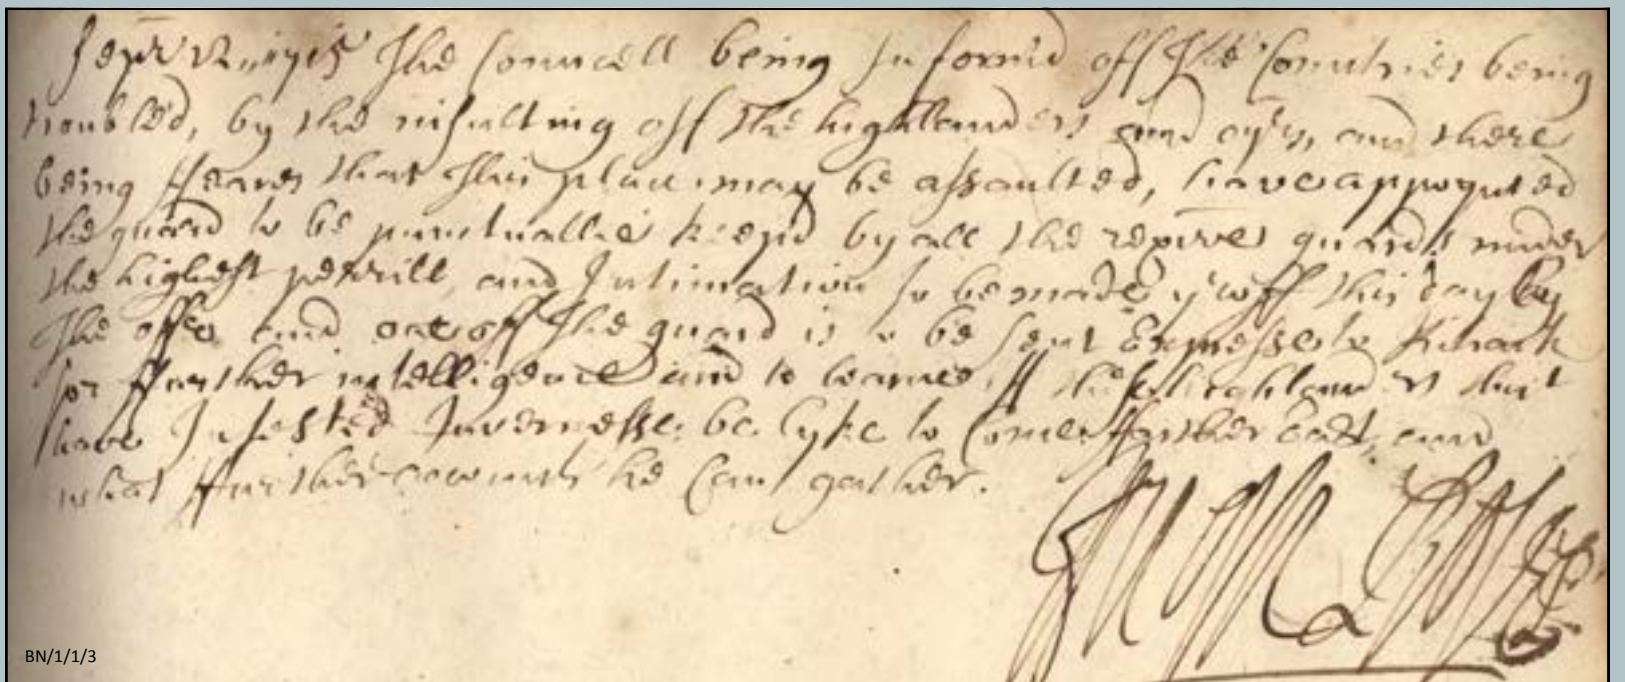 The Councell being Informed off The Countries being
troubled, by the insulting off The highlanders and oyrs, and there
being ffeares that This place may be assaulted, have appoynted
The guard to be punctuallie keepd by all the guards under
the highest perrill, and Intimation to be made yroff this day by
The offrs and off The guard is to be sent Expresse to Kilraick
for ffurther intelligence and to learne if these highlanders that
have Infested Invernesse be lyke to Come ffurther East, and
what ffurther accounts he Can gather.
BN/1/1/3